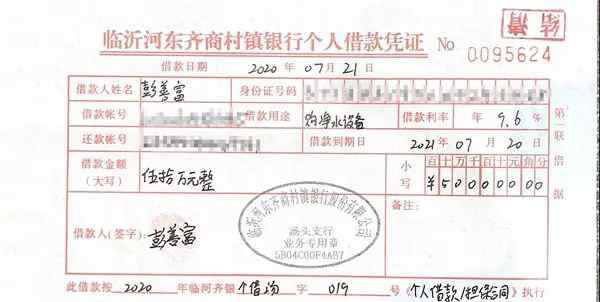 结清
临沂河东齐商村镇银行个人借款凭证 No 0095624
借款日期 2020 年 07 月 21 日
借款人姓名 彭善富 身份证号码
借款帐号 借款用途 购净水设备 借款利率 年 9.6 %
还款帐号 借款到期日 2021 年 07 月 20 日
借款金额 伍拾万元整 小 百十万千百十元角分
（大写） 写 ¥50000000
借款人（签字）：彭善富 备注：
临沂河东齐商村镇银行股份有限公司
汤头支行
业务专用章
5B04C00F4AB7
此借款按 2020 年临河齐银 个借汤 字 019 号《个人借款/担保合同》执行
第一联 借据